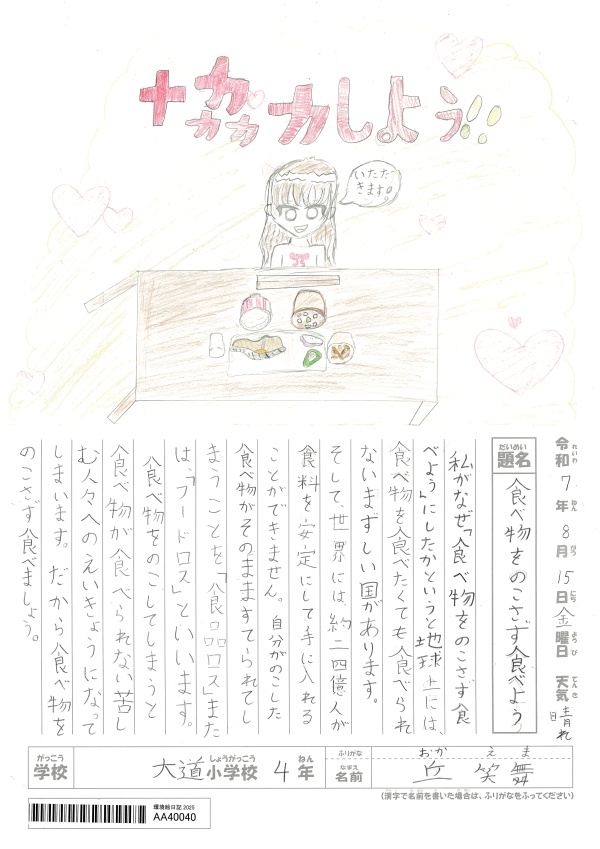 ナカカカカしよう!!
いただ
きます!
令和7年8月15日金曜日 天気 晴れ
れいわ ねん がつ にち ようび てんき
だいめい
題名
食べ物をのこさず食べよう
私がなぜ「食べ物をのこさず食
べよう」にしたかというと地球上には、
食べ物を食べたくても食べられ
ないまずしい国があります。
そして、世界には、約二四億人が
食料を安定にして手に入れる
ことができません。自分がのこした
食べ物がそのまますてられてし
まうことを、「食品ロス」また
は、「フードロス」といいます。
食べ物をのこしてしまうと
食べ物が食べられない苦し
む人々へのえいきょうになって
しまいます。だから食べ物を
のこさず食べましょう。
がっこう
学校
大道小学校 4年
しょうがっこう ねん
ふりがな
おか えま
なまえ
名前
丘 笑舞
(漢字で名前を書いた場合は、ふりがなをふってください)
環境絵日記 2025
AA40040